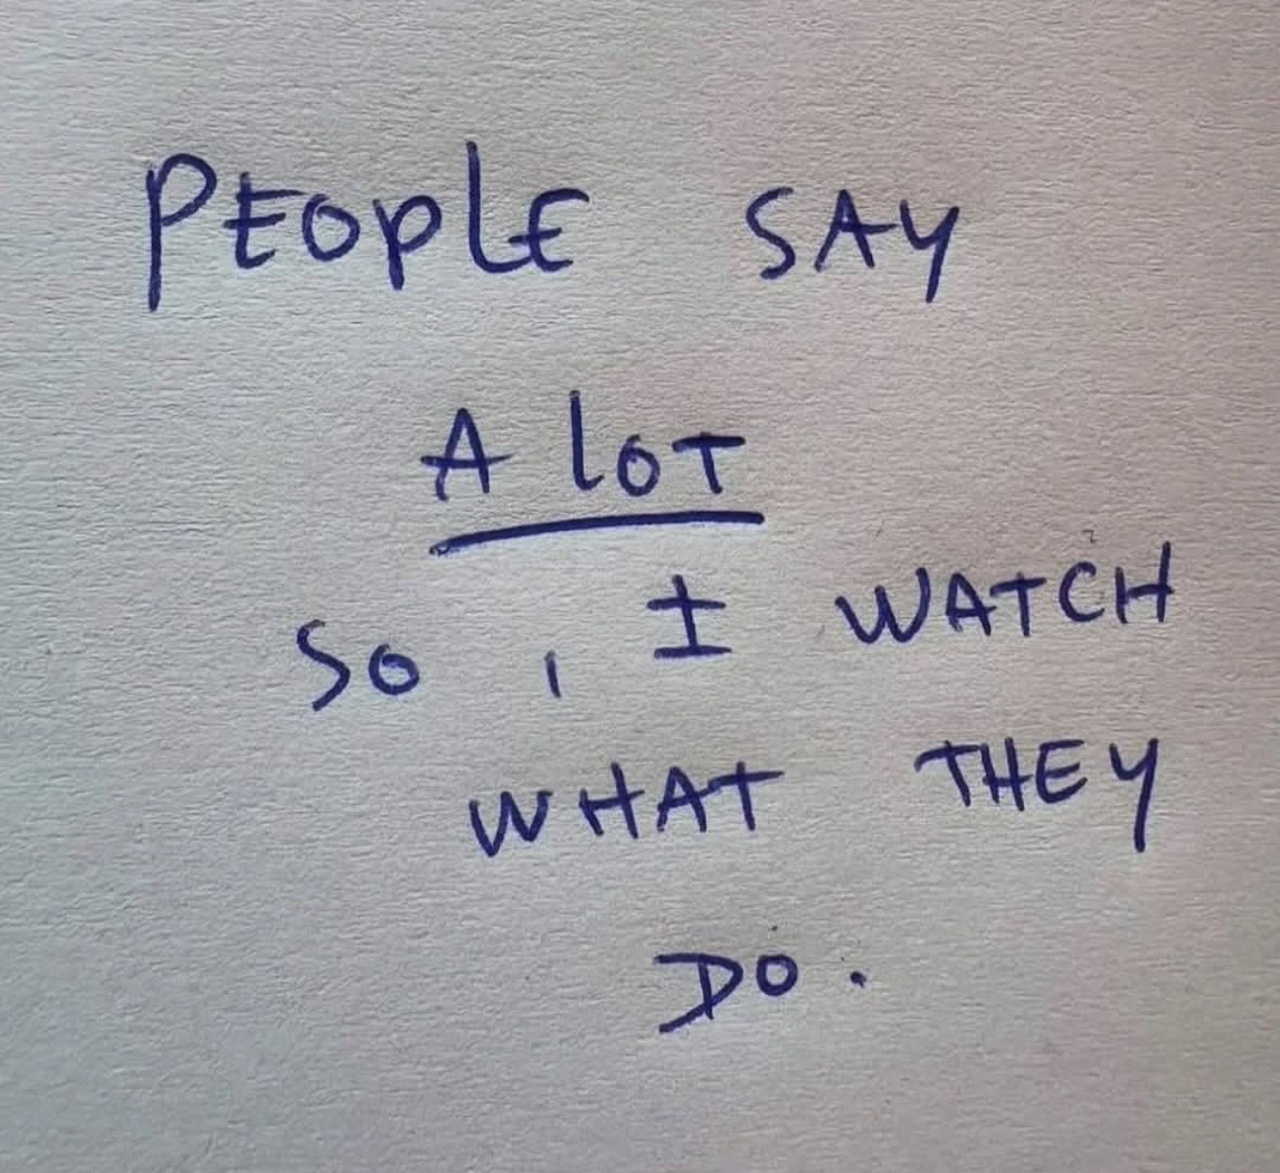 PEOPLE SAY
A LOT
SO, I WATCH
WHAT THEY
DO.